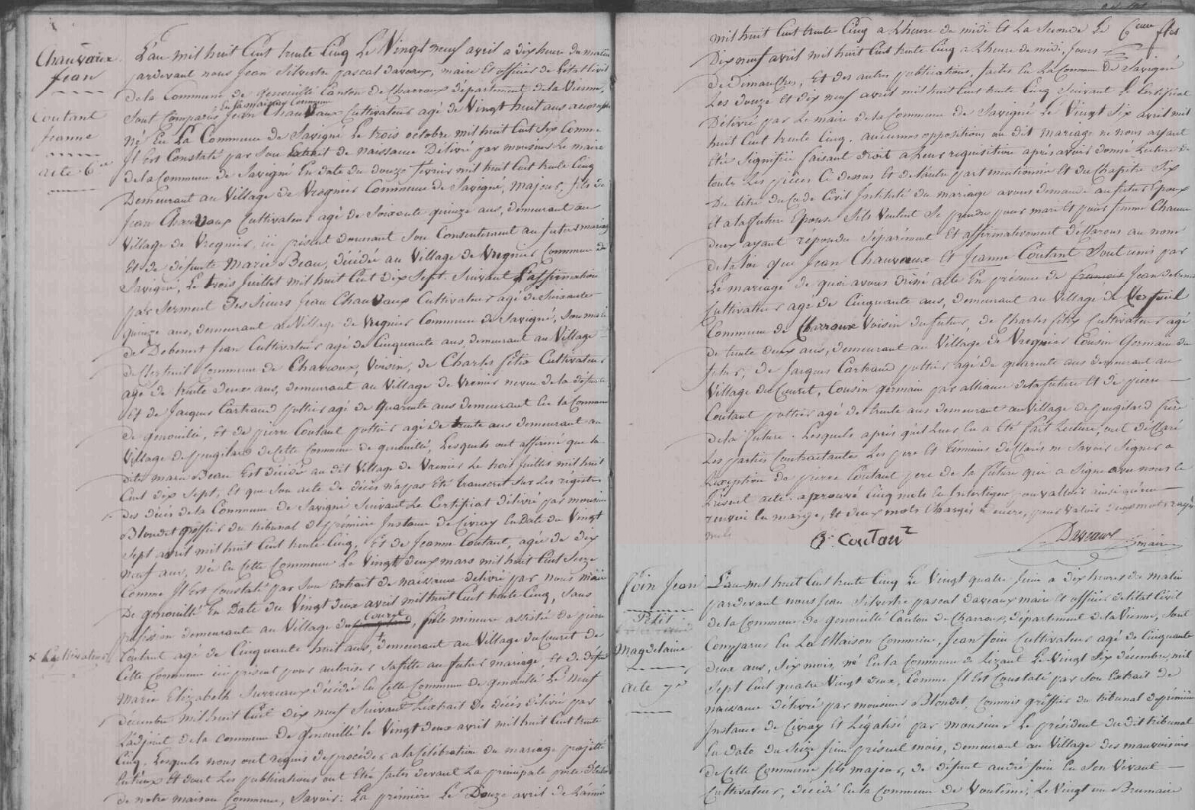 Chauvaux
Jean
Coutant
Jeanne
acte 6e
L'an mil huit Cent trente Cinq le Vingt neuf avril a dix heure du matin
pardevant nous Jean Silvestre pascal Davaux, maire Et officier de L'etat Civil
de la Commune de genouillé Canton de Charroux département de la Vienne,
Sont Comparus en la maison Commune Jean Chauvaux Cultivateur agé de Vingt huit ans
né En La Commune de Savigné le trois octobre mil huit Cent Six Comme
Il Est Constaté par Son Extrait de naissance Délivré par monsieur le maire
de la Commune de Savigné En date du douze fevrier mil huit Cent trente Cinq
Demeurant au Village de Vregnier Commune de Savigné, majeur, fils de
Jean Chauvaux Cultivateur agé de Soixante quinze ans, demeurant au
Village de Vregnier, ici présent donnant Son Consentement au futur mariage
Et de défunte Marie Beau, décédée au Village de Vregnier Commune de
Savigné, Le trois juillet mil huit Cent dix Sept, Suivant L'affirmation
par Serment des Sieurs Jean Chauvaux Cultivateur agé de Soixante
quinze ans, demeurant au Village de Vregnier Commune de Savigné,
de Jean Cultivateur agé de Cinquante ans, demeurant au Village
de Verteuil Commune de Charroux, Voisin, de Charles félix Cultivateur
agé de trente deux ans, demeurant au Village de Vrenier neveu de la défunte
Et de Jacques Cartraud pottier agé de quarante ans demeurant En la Commune
de genouillé, Et de pierre Coutant pottier agé de trente ans demeurant au
Village de de Cette Commune de genouillé, Lesquels ont affirmé que la
dite marie Beau Est décédée au dit Village de Vrenier Le trois juillet mil huit
Cent dix Sept, Et que Son acte de décès n'a pas Eté transcrit Sur Les registres
des décès de la Commune de Savigné Suivant Le Certificat délivré par monsieur
Blondet greffier du tribunal de première Instance de Civray En Date du Vingt
Sept avril mil huit Cent trente Cinq, Et de Jeanne Coutant, agée de dix
neuf ans, née En Cette Commune Le Vingt deux mars mil huit Cent Seize
Comme Il Est Constaté par Son Extrait de naissance délivré par Nous maire
De genouillé En Date du Vingt deux avril mil huit Cent trente Cinq, Sans
profession demeurant au Village du Couret, fille mineure assistée de pierre
x Cultivateur
Coutant agé de Cinquante huit ans, x demeurant au Village du Couret de
Cette Commune ici présent pour autoriser Sa fille au futur mariage, Et de défunte
Marie Elizabeth décédée En Cette Commune de genouillé Le neuf
decembre mil huit Cent dix neuf Suivant L'extrait de décès Délivré par
L'adjoint de la commune de genouillé le Vingt deux avril mil huit Cent trente
Cinq, Lesquels nous ont requis de proceder a la Célébration du mariage projetté
Entreux Et dont Les publications ont Eté faites devant La principale porte
de notre maison Commune, Savoir: La première Le Douze avril de Lanné
mil huit Cent trente Cinq a L'heure de midi Et La Seconde Le
Dix neuf avril mil huit Cent trente Cinq a L'heure de midi. Jours
de Dimanches, Et des autres publications, faites En La Commune de Savigné
Les Douze Et dix neuf avril mil huit Cent trente Cinq Suivant Le Certificat
Délivré par Le maire de la Commune de Savigné Le Vingt Six avril mil
huit Cent trente Cinq. aucunes oppositions au dit Mariage ne nous ayant
Eté Signifiée faisant Droit a Leur requisition après avoir donné Lecture de
toutes Les pièces Ci dessus Et de toute part mentionnées Et du Chapitre Six
Du titre du Code Civil Intitulé du mariage avons demandé au futur Epoux
Et a la future Epouse, Sils Veulent Se prendre pour mari Et pour femme Chacun
deux ayant répondu Séparément Et affirmativement déclarons au nom
de la loi que Jean Chauvaux Et Jeanne Coutant Sont unis par
Le mariage de quoi avons dréssé acte En présence de Jean
Cultivateur agé de Cinquante ans, demeurant au Village de Verteuil
Commune de Charroux Voisin du futur, de Charles félix Cultivateur agé
de trente deux ans, demeurant au Village de Vregnier Cousin Germain du
futur, de Jacques Cartraud pottier agé de quarante ans demeurant au
Village du Couret, Cousin germain par alliance de la future Et de pierre
Coutant pottier agé de trente ans demeurant au Village de frère
de la future. Lesquels après quil Leur En a Eté fait Lecture, ont déclaré
Les parties Contractantes Les pere Et témoins Déclaré ne Savoir Signer a
Lexception de pierre Coutant pere de la future qui a Signé avec nous le
présent acte. approuvé Cinq mots En Interligne
renvoi En marge, Et deux mots Chargés d'encre,
nuls
P. Coutant
Davaux maire
Foin Jean
Petit
Magdelaine
acte 7e
L'an mil huit Cent trente Cinq Le Vingt quatre Juin a dix heures du matin
pardevant nous Jean Silvestre pascal Davaux maire Et officier de létat Civil
de la Commune de Genouillé Canton de Charroux, département de la Vienne, Sont
Comparus En La Maison Commune, Jean foin Cultivateur agé de Cinquante
deux ans, Six mois, né En la Commune de Lizant Le Vingt Six décembre mil
Sept Cent quatre Vingt deux, Comme Il Est Constaté par Son Extrait de
naissance délivré par monsieur Blondet, Commis greffier du tribunal de première
Instance de Civray Et Légalisé par monsieur Le président du dit tribunal
En date du Seize Juin présent mois, demeurant au Village des mauvaisins
de Cette Commune fils majeur, de défunt andré foin En Son Vivant
Cultivateur, décédé En la Commune de Voulême, Le Vingt un Brumaire